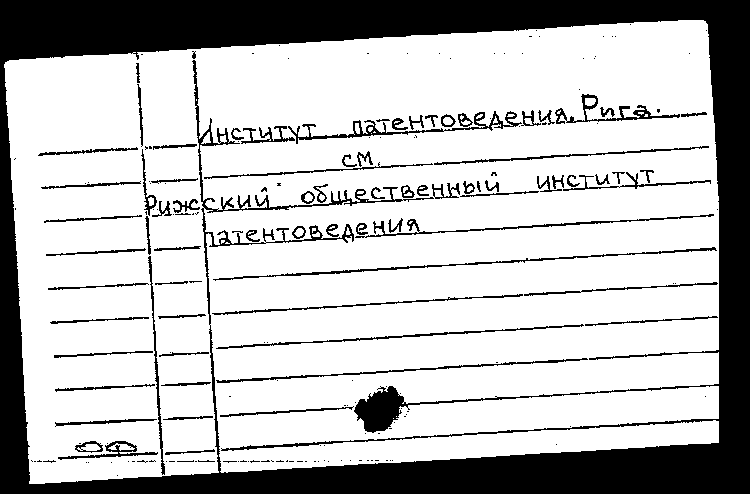 Институт патентоведения. Рига.
см.
Рижский общественный институт
патентоведения